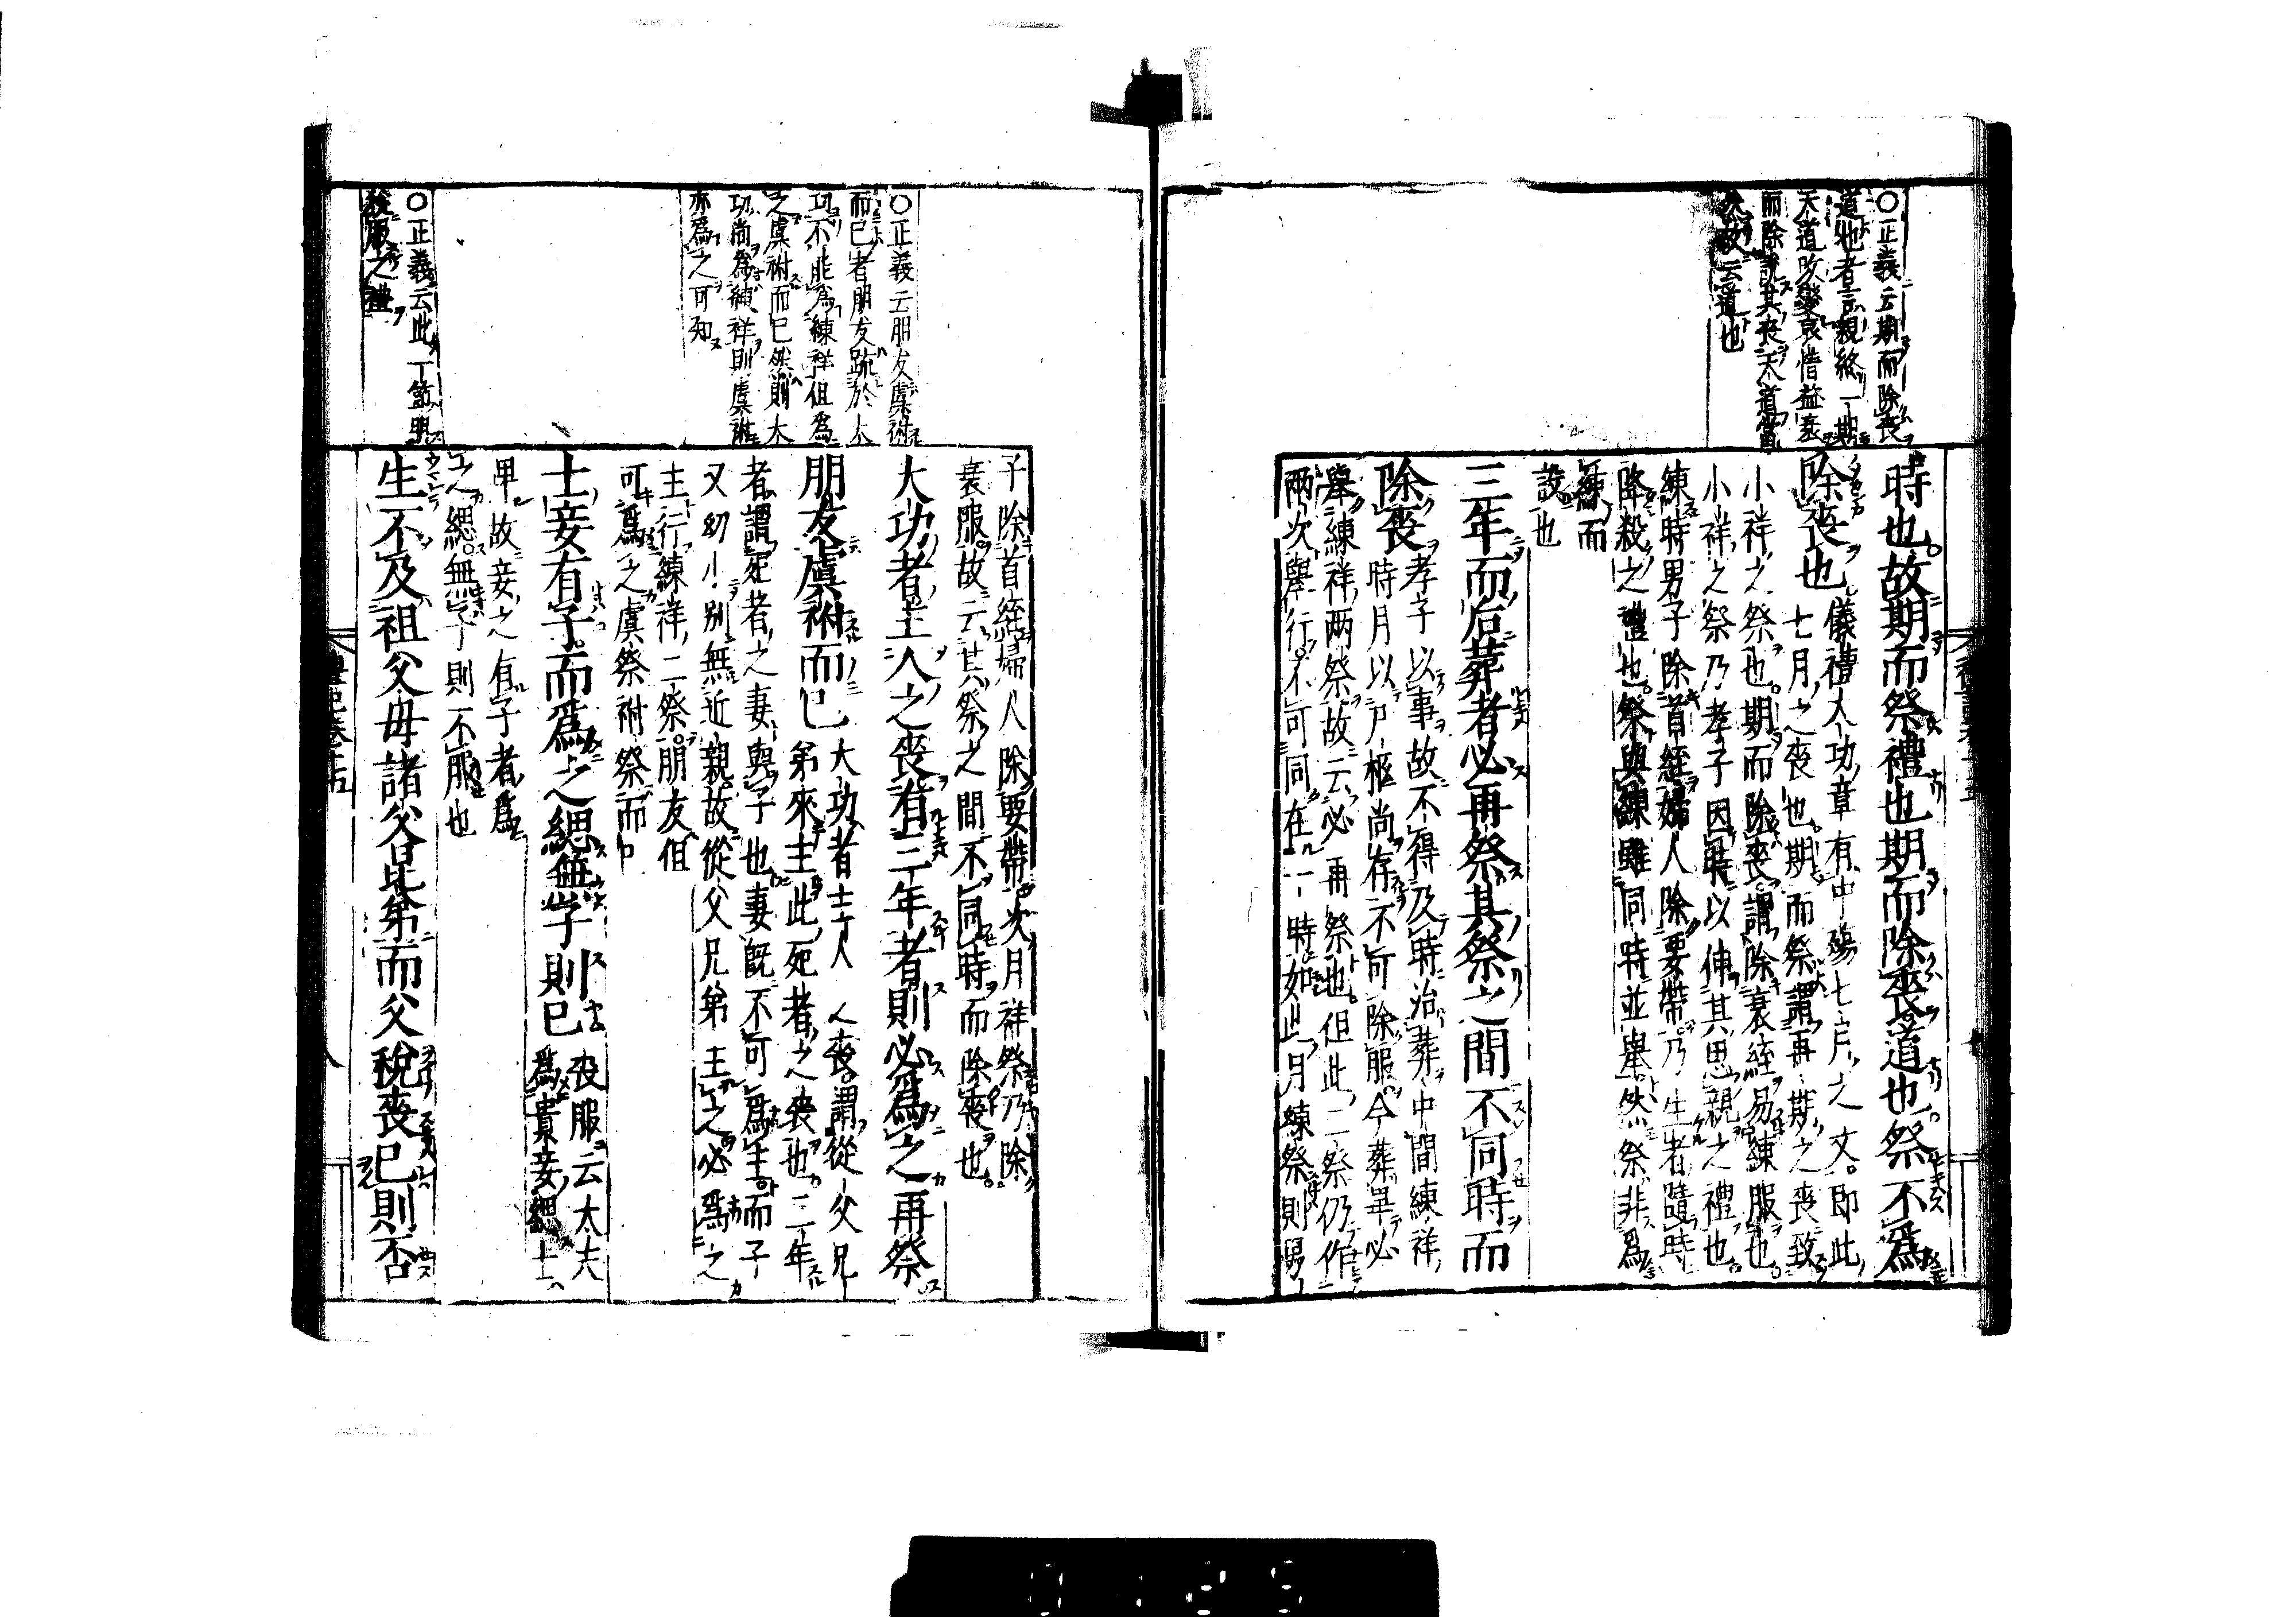 〇正義云期而除喪
道也者言親終一期
天道改變哀惜益衰
而除說其喪天道當
然故云道也
時也故期而祭禮也期而除喪道也祭不爲
除喪也
儀禮大功章有中殤七月之文即此
七月之喪也期而祭謂再期之喪致
小祥之祭也期而除喪謂除衰絰易練服也
小祥之祭乃孝子因時以伸其思親之禮也
練時男子除首絰婦人除要帶乃生者隨時
降殺之禮也祭與練雖同時並舉然祭非爲
練而
設也
三年而后葬者必再祭其祭之間不同時而
除喪
孝子以事故不得及時治葬中間練祥
時月以尸柩尚存不可除服今葬畢必
舉練祥兩祭故云必再祭也但此二祭仍作
兩次舉行不可同在一時如此月練祭則男
〇正義云朋友虞祔
而已者朋友疏於大
功不能爲練祥但爲
之虞祔而已然則大
功尚爲練祥則虞祔
亦爲之可知
〇正義云此一節明
稅服之禮
子除首絰婦人除要帶次月祥祭乃除
衰服故云其祭之間不同時而除喪也
大功者主人之喪有三年者則必爲之再祭
朋友虞祔而已
大功者主人之喪謂從父兄
弟來主此死者之喪也三年
者謂死者之妻與子也妻既不可爲主而子
又幼小別無近親故從父兄弟主之必爲之
主行練祥二祭朋友但
可爲之虞祭祔祭而已
士妾有子而爲之緦無子則已
喪服云大夫
爲貴妾緦士
卑故妾之有子者爲
之緦無子則不服也
生不及祖父母諸父昆弟而父稅喪已則否
禮記卷十五